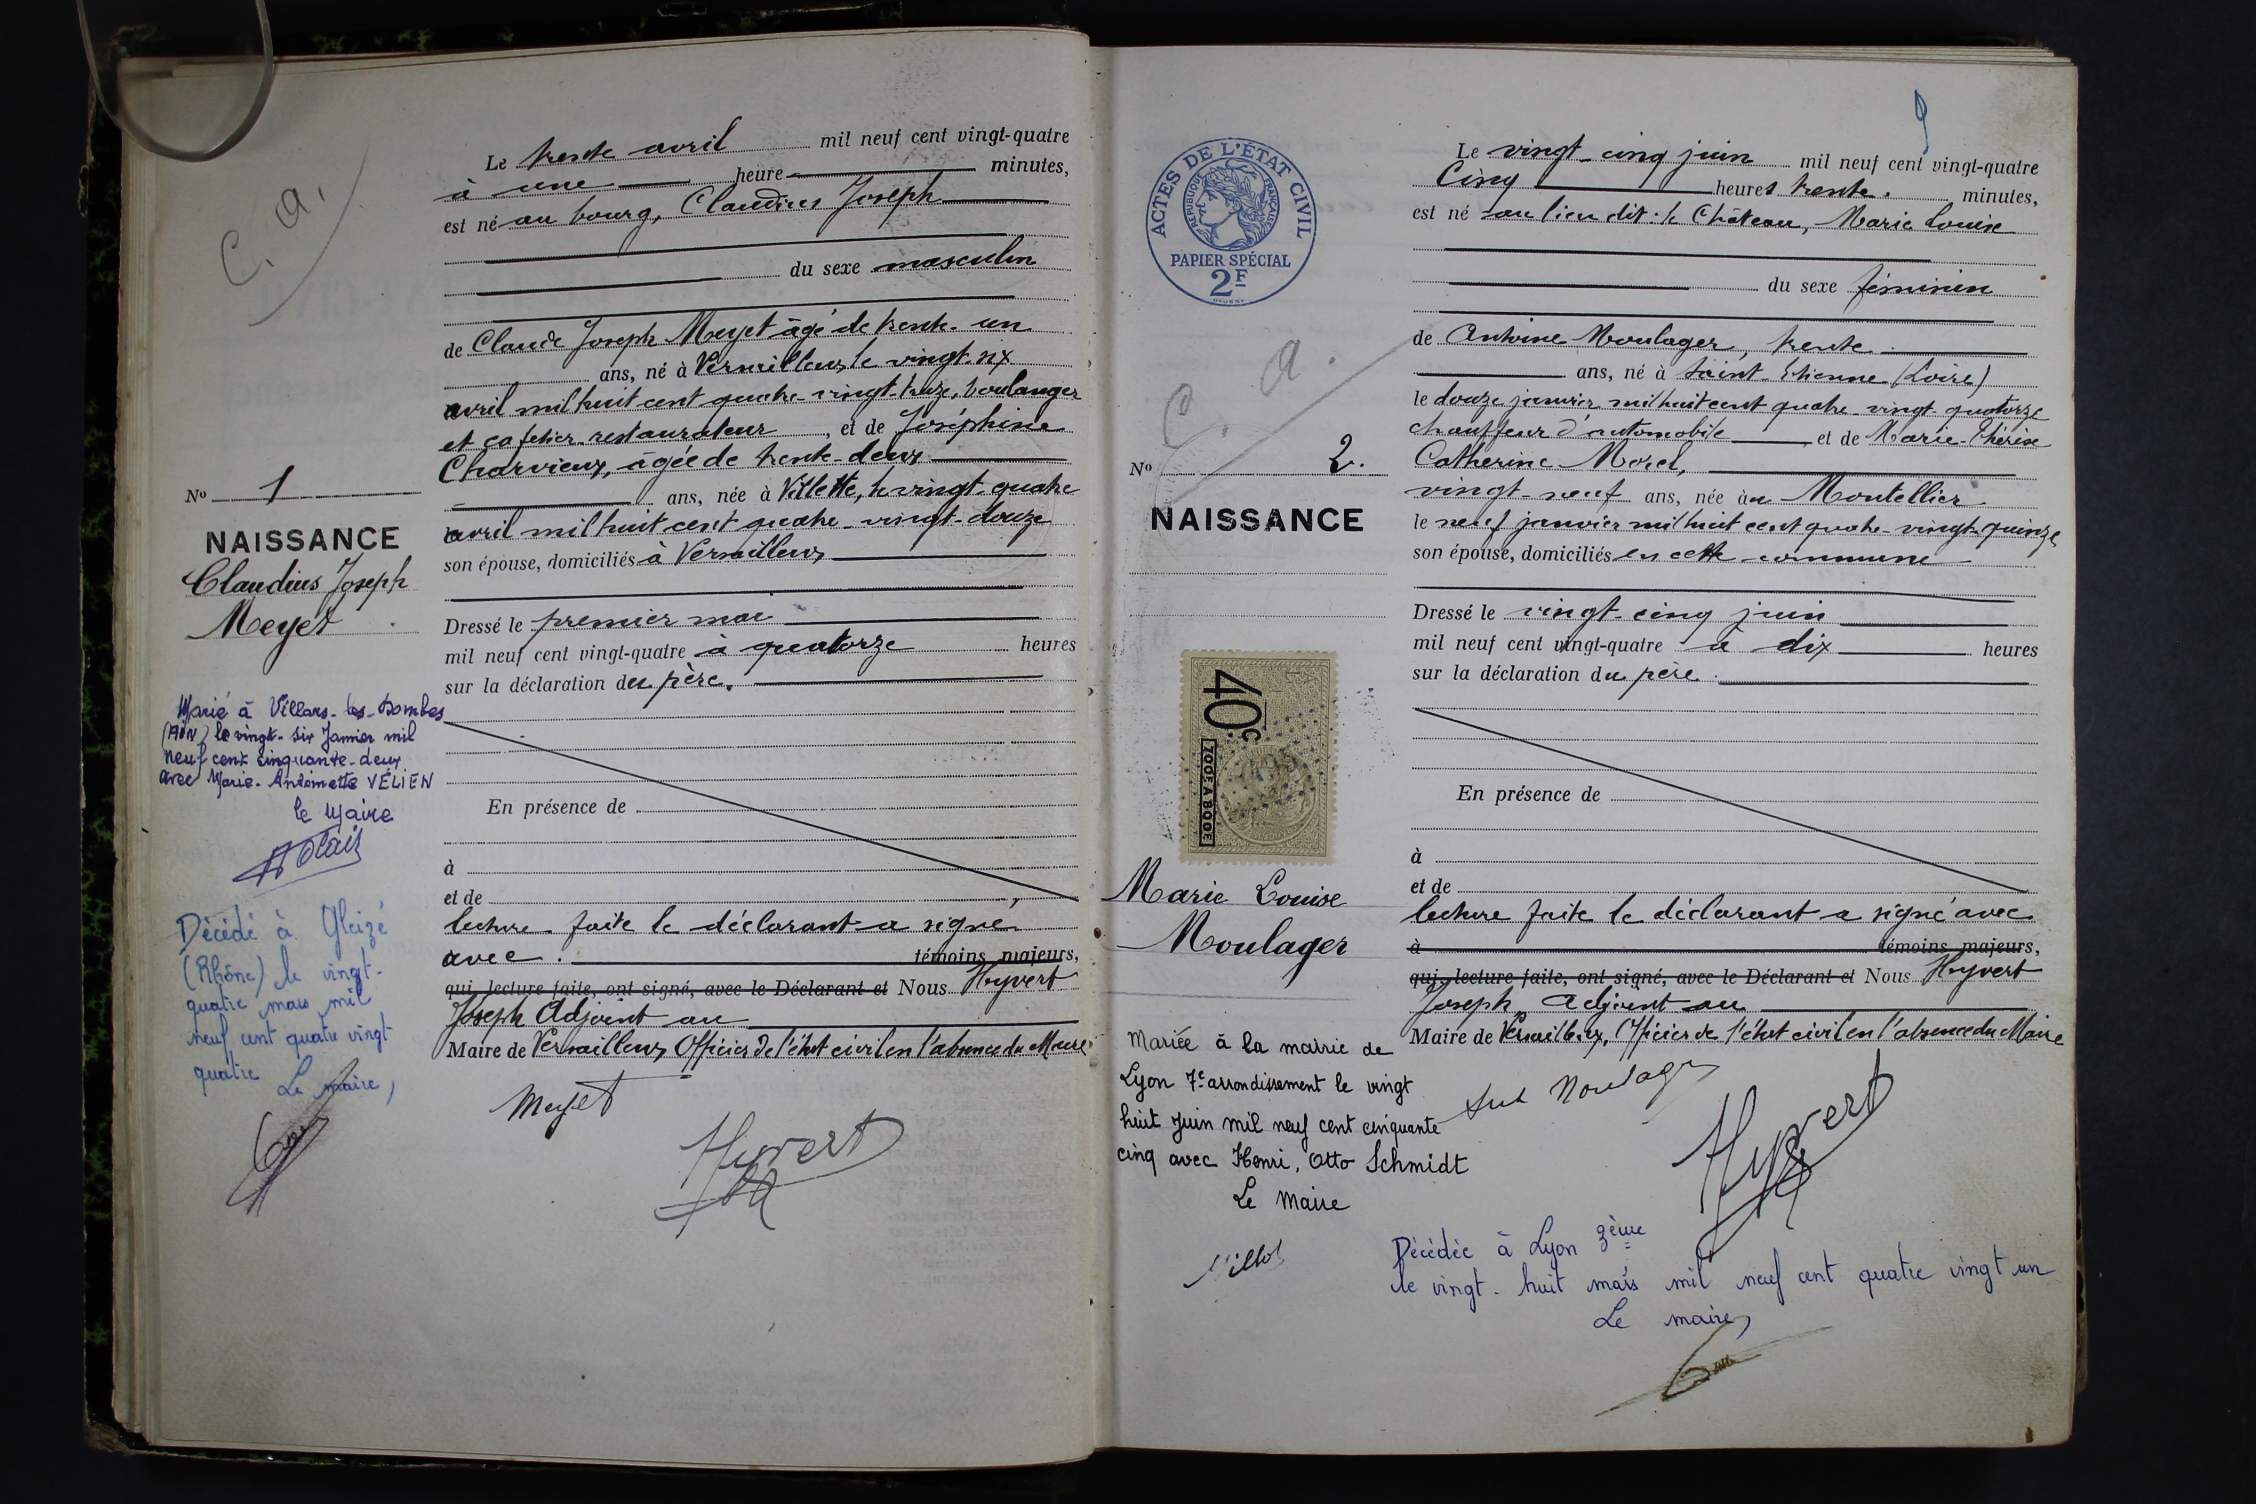 C. a.
Le trente avril mil neuf cent vingt-quatre
à une heure minutes,
est né au bourg, Claudius Joseph
du sexe masculin
de Claude Joseph Meyet âgé de trente-un
ans, né à Versailleux le vingt-six
avril mil huit cent quatre-vingt-treize, boulanger
et cafetier restaurateur, et de Joséphine
Charvieux, âgée de trente-deux
ans, née à Villette, le vingt-quatre
avril mil huit cent quatre-vingt-douze
son épouse, domiciliés à Versailleux
Dressé le premier mai
mil neuf cent vingt-quatre à quatorze heures
sur la déclaration du père.
En présence de
à
et de ,
lecture faite le déclarant a signé
avec témoins majeurs,
qui, lecture faite, ont signé, avec le Déclarant et Nous Hyvert
Joseph Adjoint au
Maire de Versailleux Officier de l'état civil en l'absence du Maire
Meyet
Hyvert
No 1
NAISSANCE
Claudius Joseph
Meyet
Marié à Villars-les-Dombes
(AIN) le vingt-six Janvier mil
neuf cent cinquante-deux
avec Marie-Antoinette VÉLIEN
le Maire
Décédé à Gleizé
(Rhône) le vingt-
quatre mars mil
neuf cent quatre vingt
quatre Le maire,
ACTES DE L'ÉTAT CIVIL
RÉPUBLIQUE FRANÇAISE
PAPIER SPÉCIAL
2F
C. a.
No 2.
NAISSANCE
40c
700E A 800E
Marie Louise
Moulager
Mariée à la mairie de
Lyon 7e arrondissement le vingt
huit Juin mil neuf cent cinquante
cinq avec Henri, Otto Schmidt
Le Maire
Le vingt-cinq juin mil neuf cent vingt-quatre
Cinq heures trente. minutes,
est né au lieu dit: le Château, Marie Louise
du sexe féminin
de Antoine Moulager, trente
ans, né à Saint-Etienne (Loire)
le douze janvier mil huit cent quatre-vingt-quatorze
chauffeur d'automobile et de Marie-Thérèse
Catherine Morel,
vingt-neuf ans, née au Montellier
le neuf janvier mil huit cent quatre-vingt-quinze
son épouse, domiciliés en cette commune
Dressé le vingt-cinq juin
mil neuf cent vingt-quatre à dix heures
sur la déclaration du père.
En présence de
à
et de
lecture faite le déclarant a signé avec
à témoins majeurs,
qui, lecture faite, ont signé, avec le Déclarant et Nous Hyvert
Joseph Adjoint au
Maire de Versailleux, Officier de l'état civil en l'absence du Maire
Moulager
Hyvert
Décédée à Lyon 3ème
le vingt-huit mars mil neuf cent quatre vingt un
Le maire,